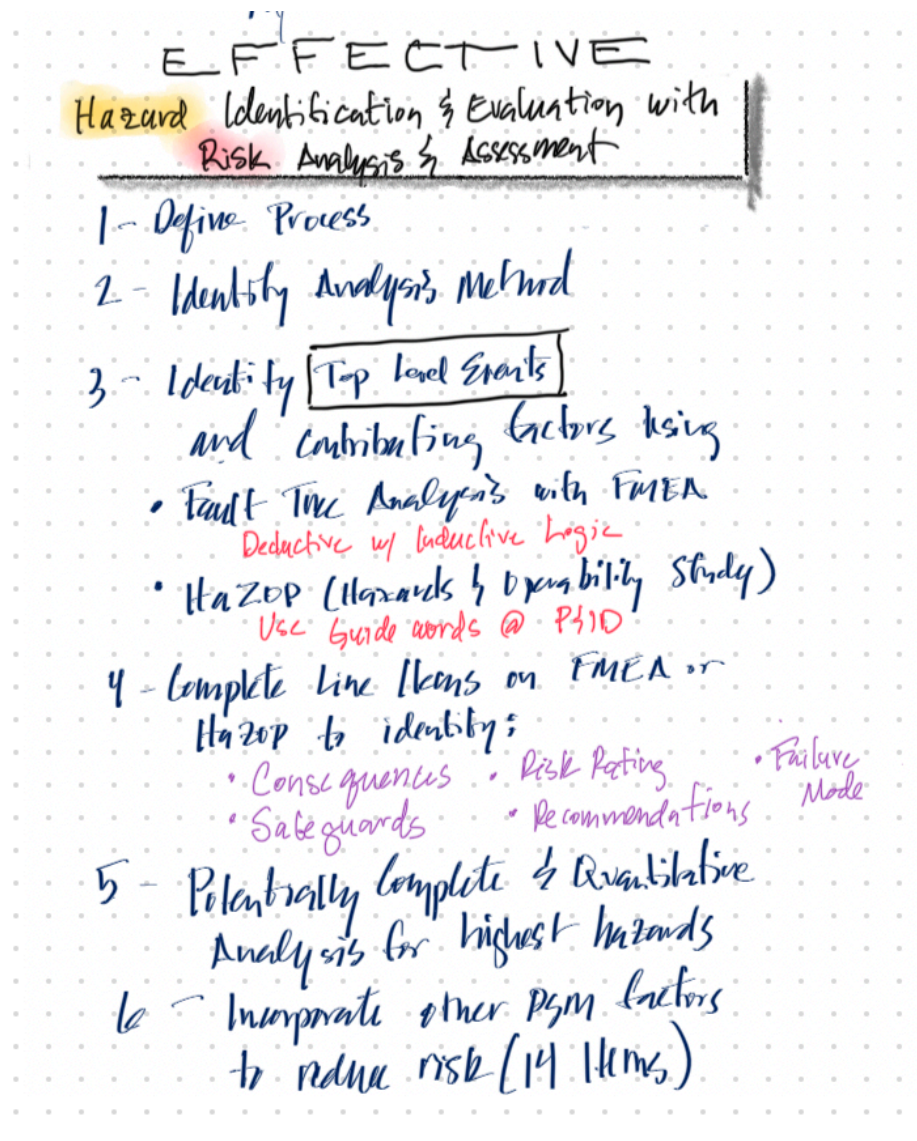 EFFECTIVE
Hazard Identification & Evaluation with
Risk Analysis & Assessment
1 - Define Process
2 - Identify Analysis Method
3 - Identify Top Level Events
and contributing factors using
• Fault Tree Analysis with FMEA
Deductive w/ Inductive Logic
• HaZOP (Hazards & Operability Study)
Use Guide words @ P&ID
4 - Complete Line Items on FMEA or
HaZOP to identify:
• Consequences • Risk Rating • Failure Mode
• Safeguards • Recommendations
5 - Potentially Complete & Quantitative
Analysis for highest hazards
6 - Incorporate other PSM factors
to reduce risk (14 Items)